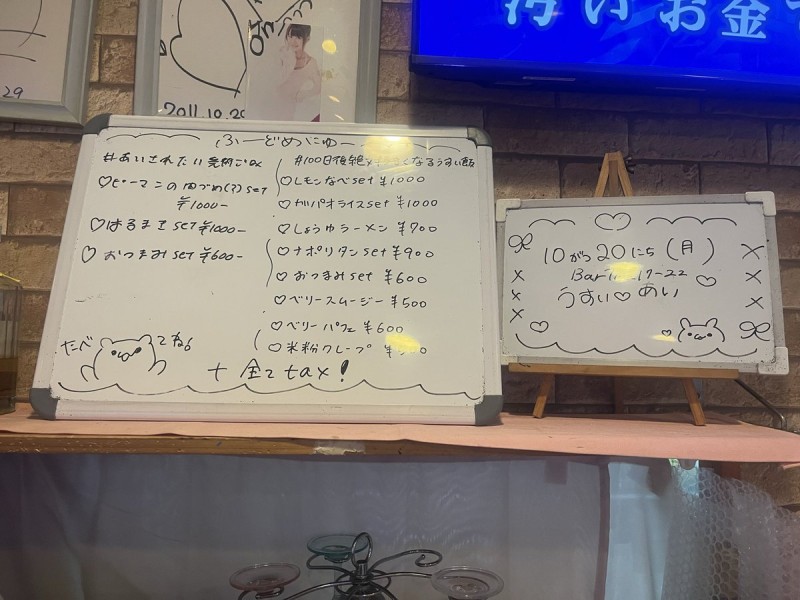 汚いお金
29
2011.10.29
ふーどめにゅー
#あいされたい
♡ピーマンの肉づめ(?)set
¥1000-
♡はるまきset ¥1000-
♡おつまみset ¥600-
たべてね
#100日後
なるうすい飯
♡レモンなべset ¥1000
♡ガパオライスset ¥1000
♡しょうゆラーメン ¥700
♡ナポリタンset ¥900
♡おつまみset ¥600
♡ベリースムージー ¥500
♡ベリーパフェ ¥600
♡米粉クレープ
+ 全て tax!
10がつ20にち(月)
17-22
うすい♡あい